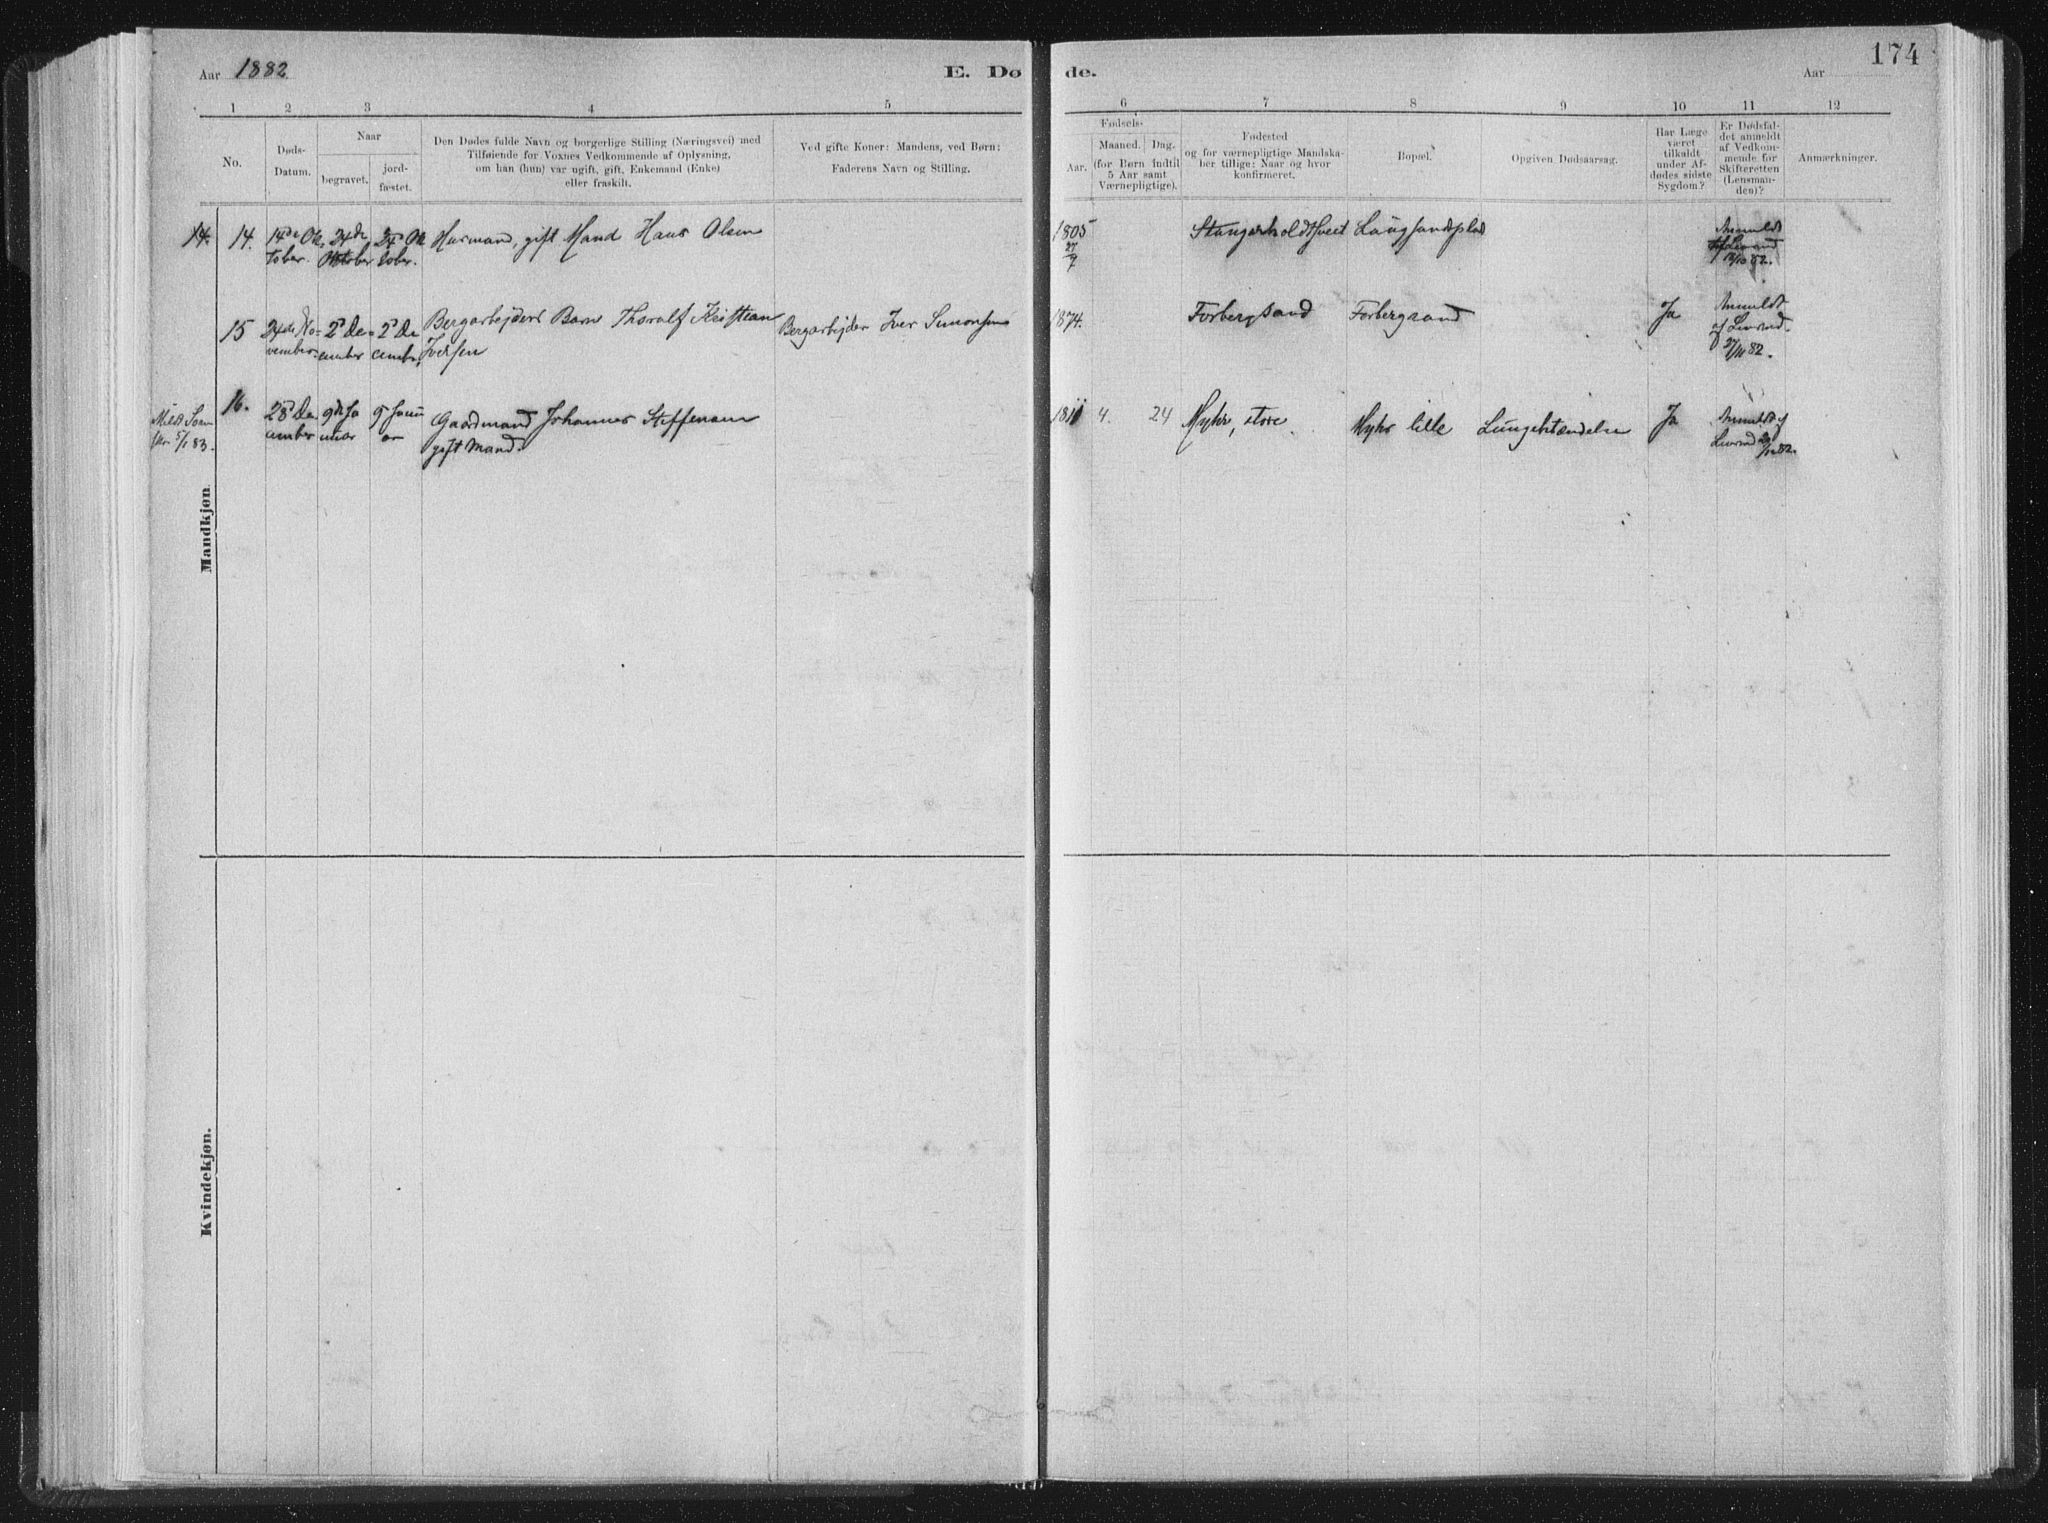 174
Aar 1882
E. Dø
de.
Aar
1 2 3 4 5
6 7 8 9 10 11 12
No.
Døds-
Datum.
Naar
begravet.
jord-
fæstet.
Den Dødes fulde Navn og borgerlige Stilling (Næringsvei) med
Tilføiende for Voxnes Vedkommende af Oplysning,
om han (hun) var ugift, gift, Enkemand (Enke)
eller fraskilt.
Ved gifte Koner: Mandens, ved Børn:
Faderens Navn og Stilling.
Fødsels-
Aar.
Maaned. Dag.
(for Børn indtil
5 Aar samt
Værnepligtige).
Fødested
og for værnepligtige Mandska-
ber tillige: Naar og hvor
konfirmeret.
Bopæl.
Opgiven Dødsaarsag.
Har Læge
været
tilkaldt
under Af-
dødes sidste
Sygdom?
Er Dødsfal-
det anmeldt
af Vedkom-
mende for
Skifteretten
(Lensman-
den)?
Anmærkninger.
14. 14. 14de Ok- 24de 24de Ok Husmand, gift Mand Hans Olsen
tober. Oktober tober.
1805
27/7
Langsandplads
Anmeldt
15 24de No- 2den De- 2den De Bergarbejders Barn Thoralf Kristian
vember. cember cember. Iversen
Bergarbejder Iver Simonsen
1874. Forbergsand Forbergsand Ja Anmeldt
27/11 82.
16. 28de De 9de Ja 9 Janu Gaardmand Johannes Steffensen
cember nuar ar gift Mand.
5/1 83.
1811 4. 24 Myhr, store. Myhr lille Lungebetændelse Ja Anmeldt
Mandkjøn
Kvindekjøn.